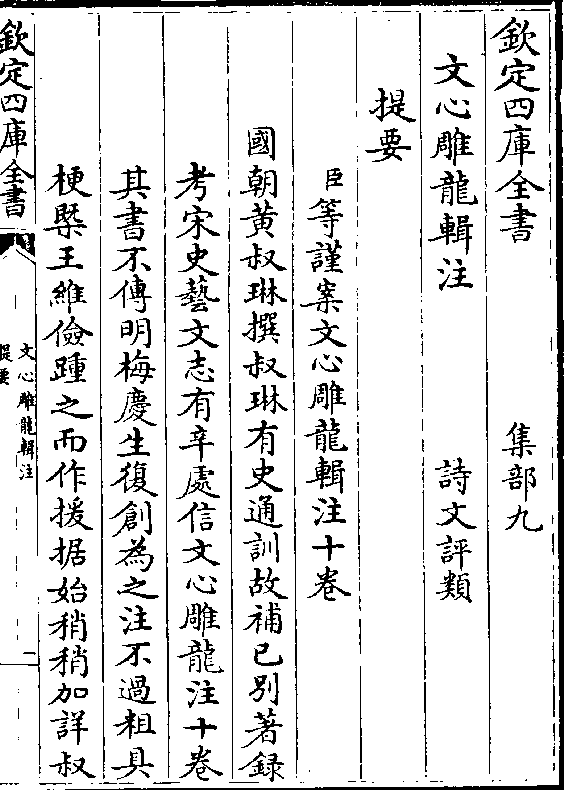 欽定四庫全書　集部九
文心雕龍輯注　詩文評類
提要
臣等謹案文心雕龍輯注十卷
國朝黃叔琳撰叔琳有史通訓故補已別著録
考宋史藝文志有辛處信文心雕龍注十卷
其書不傳明梅慶生復創為之注不過粗具
梗槩王維儉踵之而作援据始稍稍加詳叔
欽定四庫全書
文心雕龍輯注
提要
一